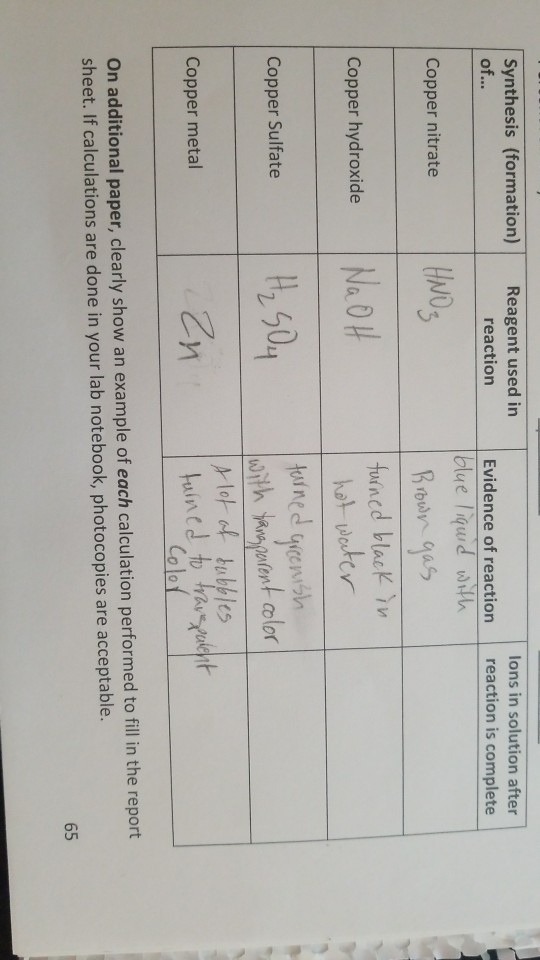 Synthesis (formation) of...
Reagent used in reaction
Evidence of reaction
Ions in solution after reaction is complete
Copper nitrate
HNO3
blue liquid with
Brown gas
Copper hydroxide
NaOH
turned black in
hot water
Copper Sulfate
H2SO4
turned greenish
with transparent color
Copper metal
Zn
A lot of bubbles
turned to transpalent
Color
On additional paper, clearly show an example of each calculation performed to fill in the report
sheet. If calculations are done in your lab notebook, photocopies are acceptable.
65